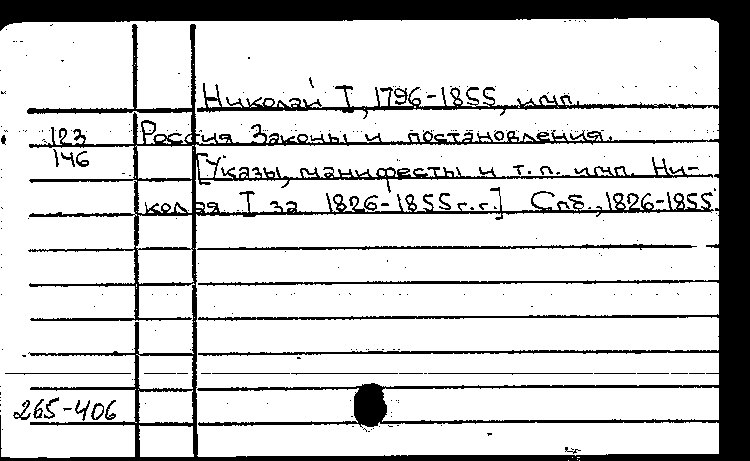 Николай I, 1796-1855, имп.
123 Россия Законы и постановления.
146 [Указы, манифесты и т.п. имп. Ни-
колая I за 1826-1855г.г.] Спб., 1826-1855
265-406